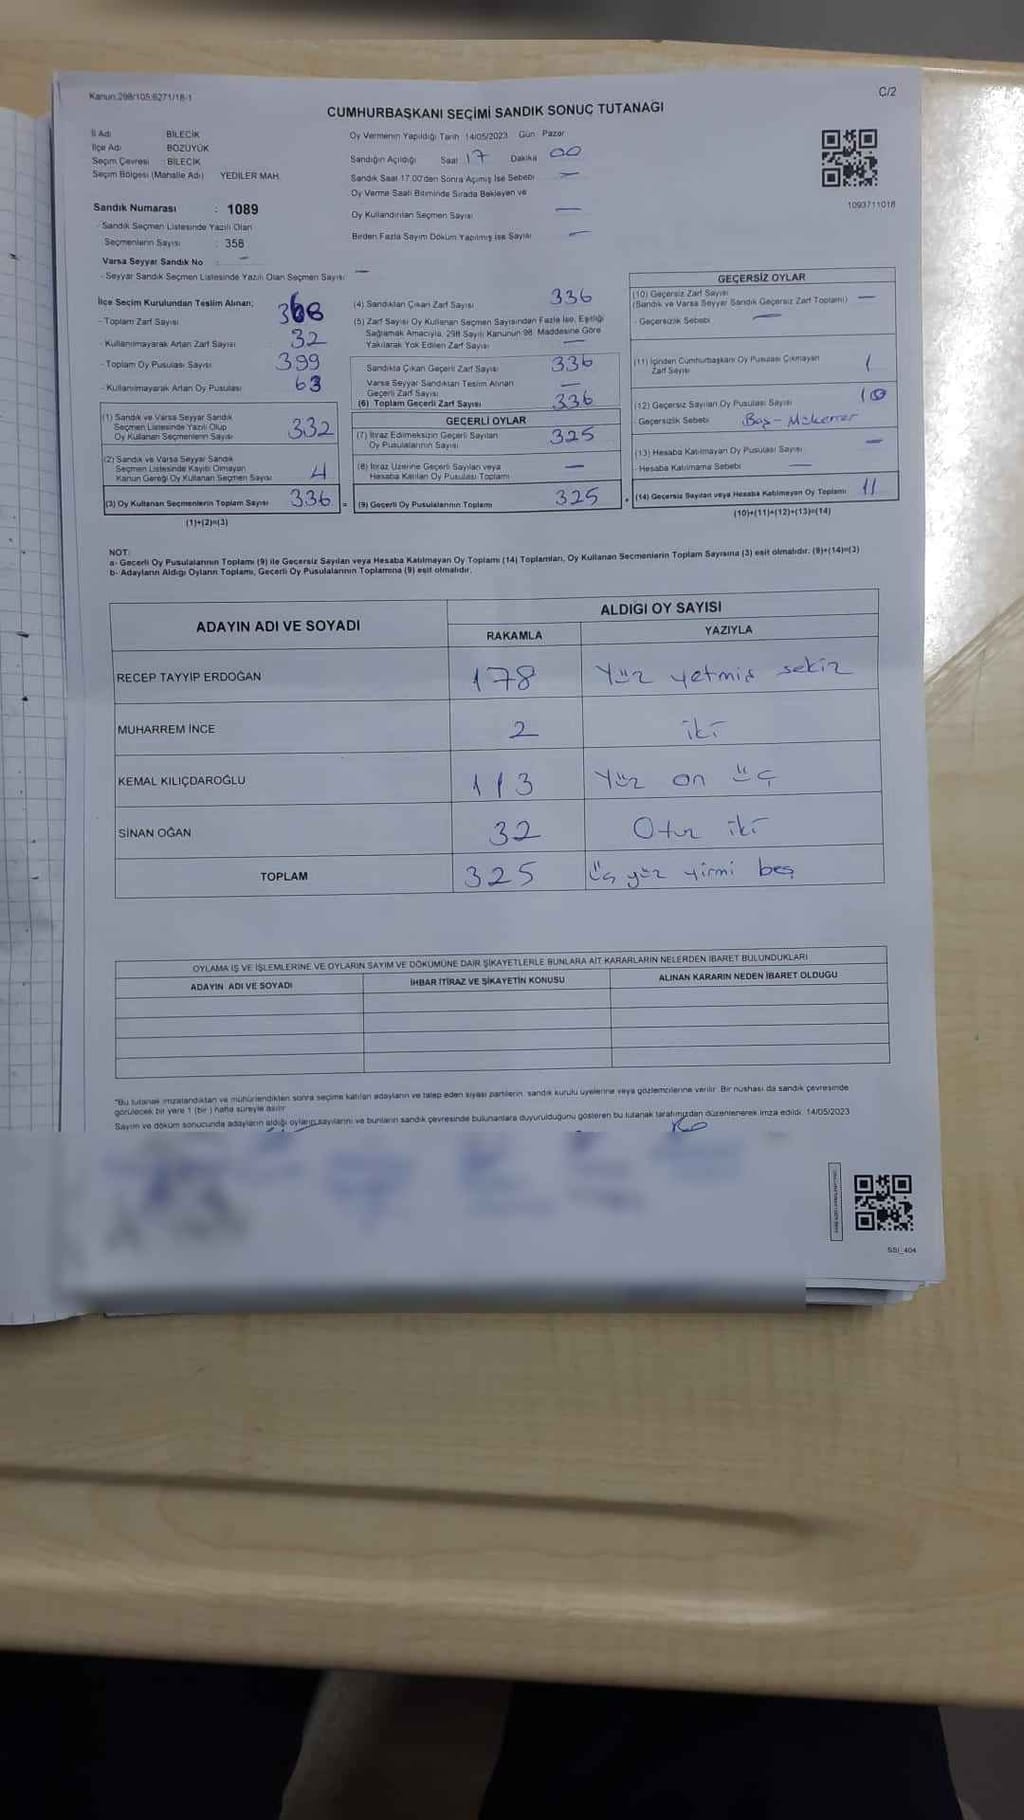 Kanun:298/105;6271/18-1
C/2
CUMHURBAŞKANI SEÇİMİ SANDIK SONUÇ TUTANAĞI
İl Adı BİLECİK
İlçe Adı BOZÜYÜK
Seçim Çevresi : BİLECİK
Seçim Bölgesi (Mahalle Adı) YEDİLER MAH.
Sandık Numarası : 1089
Sandık Seçmen Listesinde Yazılı Olan
Seçmenlerin Sayısı : 358
Varsa Seyyar Sandık No : —
- Seyyar Sandık Seçmen Listesinde Yazılı Olan Seçmen Sayısı —
Oy Vermenin Yapıldığı Tarih 14/05/2023 Gün Pazar
Sandığın Açıldığı Saat 17 Dakika 00
Sandık Saat 17.00'den Sonra Açılmış İse Sebebi —
Oy Verme Saati Bitiminde Sırada Bekleyen ve
Oy Kullandırılan Seçmen Sayısı —
Birden Fazla Sayım Döküm Yapılmış İse Sayısı —
1093711018
İlçe Seçim Kurulundan Teslim Alınan;
- Toplam Zarf Sayısı 368
- Kullanılmayarak Artan Zarf Sayısı 32
- Toplam Oy Pusulası Sayısı 399
- Kullanılmayarak Artan Oy Pusulası 63
(1) Sandık ve Varsa Seyyar Sandık
Seçmen Listesinde Yazılı Olup
Oy Kullanan Seçmenlerin Sayısı 332
(2) Sandık ve Varsa Seyyar Sandık
Seçmen Listesinde Kayıtlı Olmayan
Kanun Gereği Oy Kullanan Seçmen Sayısı 4
(3) Oy Kullanan Seçmenlerin Toplam Sayısı 336 =
(1)+(2)=(3)
(4) Sandıktan Çıkan Zarf Sayısı 336
(5) Zarf Sayısı Oy Kullanan Seçmen Sayısından Fazla İse, Eşitliği
Sağlamak Amacıyla, 298 Sayılı Kanunun 98. Maddesine Göre
Yakılarak Yok Edilen Zarf Sayısı —
Sandıkta Çıkan Geçerli Zarf Sayısı 336
Varsa Seyyar Sandıktan Teslim Alınan
Geçerli Zarf Sayısı —
(6) Toplam Geçerli Zarf Sayısı 336
GEÇERLİ OYLAR
(7) İtiraz Edilmeksizin Geçerli Sayılan
Oy Pusulalarının Sayısı 325
(8) İtiraz Üzerine Geçerli Sayılan veya
Hesaba Katılan Oy Pusulası Toplamı —
(9) Geçerli Oy Pusulalarının Toplamı 325 +
GEÇERSİZ OYLAR
(10) Geçersiz Zarf Sayısı
(Sandık ve Varsa Seyyar Sandık Geçersiz Zarf Toplamı) —
- Geçersizlik Sebebi —
(11) İçinden Cumhurbaşkanı Oy Pusulası Çıkmayan
Zarf Sayısı 1
(12) Geçersiz Sayılan Oy Pusulası Sayısı 10
Geçersizlik Sebebi Boş - Mükerrer
(13) Hesaba Katılmayan Oy Pusulası Sayısı —
- Hesaba Katılmama Sebebi —
(14) Geçersiz Sayılan veya Hesaba Katılmayan Oy Toplamı 11
(10)+(11)+(12)+(13)=(14)
NOT:
a- Geçerli Oy Pusulalarının Toplamı (9) ile Geçersiz Sayılan veya Hesaba Katılmayan Oy Toplamı (14) Toplamları, Oy Kullanan Seçmenlerin Toplam Sayısına (3) eşit olmalıdır. (9)+(14)=(3)
b- Adayların Aldığı Oyların Toplamı, Geçerli Oy Pusulalarının Toplamına (9) eşit olmalıdır.
ADAYIN ADI VE SOYADI ALDIĞI OY SAYISI
RAKAMLA YAZIYLA
RECEP TAYYİP ERDOĞAN 178 Yüz yetmiş sekiz
MUHARREM İNCE 2 iki
KEMAL KILIÇDAROĞLU 113 Yüz on üç
SİNAN OĞAN 32 Otuz iki
TOPLAM 325 Üç yüz yirmi beş
OYLAMA İŞ VE İŞLEMLERİNE VE OYLARIN SAYIM VE DÖKÜMÜNE DAİR ŞİKAYETLERLE BUNLARA AİT KARARLARIN NELERDEN İBARET BULUNDUKLARI
ADAYIN ADI VE SOYADI İHBAR İTİRAZ VE ŞİKAYETİN KONUSU ALINAN KARARIN NEDEN İBARET OLDUĞU
*Bu tutanak imzalandıktan ve mühürlendikten sonra seçime katılan adayların ve talep eden siyasi partilerin sandık kurulu üyelerine veya gözlemcilerine verilir. Bir nüshası da sandık çevresinde
görülecek bir yere 1 (bir ) hafta süreyle asılır.
Sayım ve döküm sonucunda adayların aldığı oyların sayılarını ve bunların sandık çevresinde bulunanlara duyurulduğunu gösteren bu tutanak tarafımızdan düzenlenerek imza edildi. 14/05/2023
SSI_404